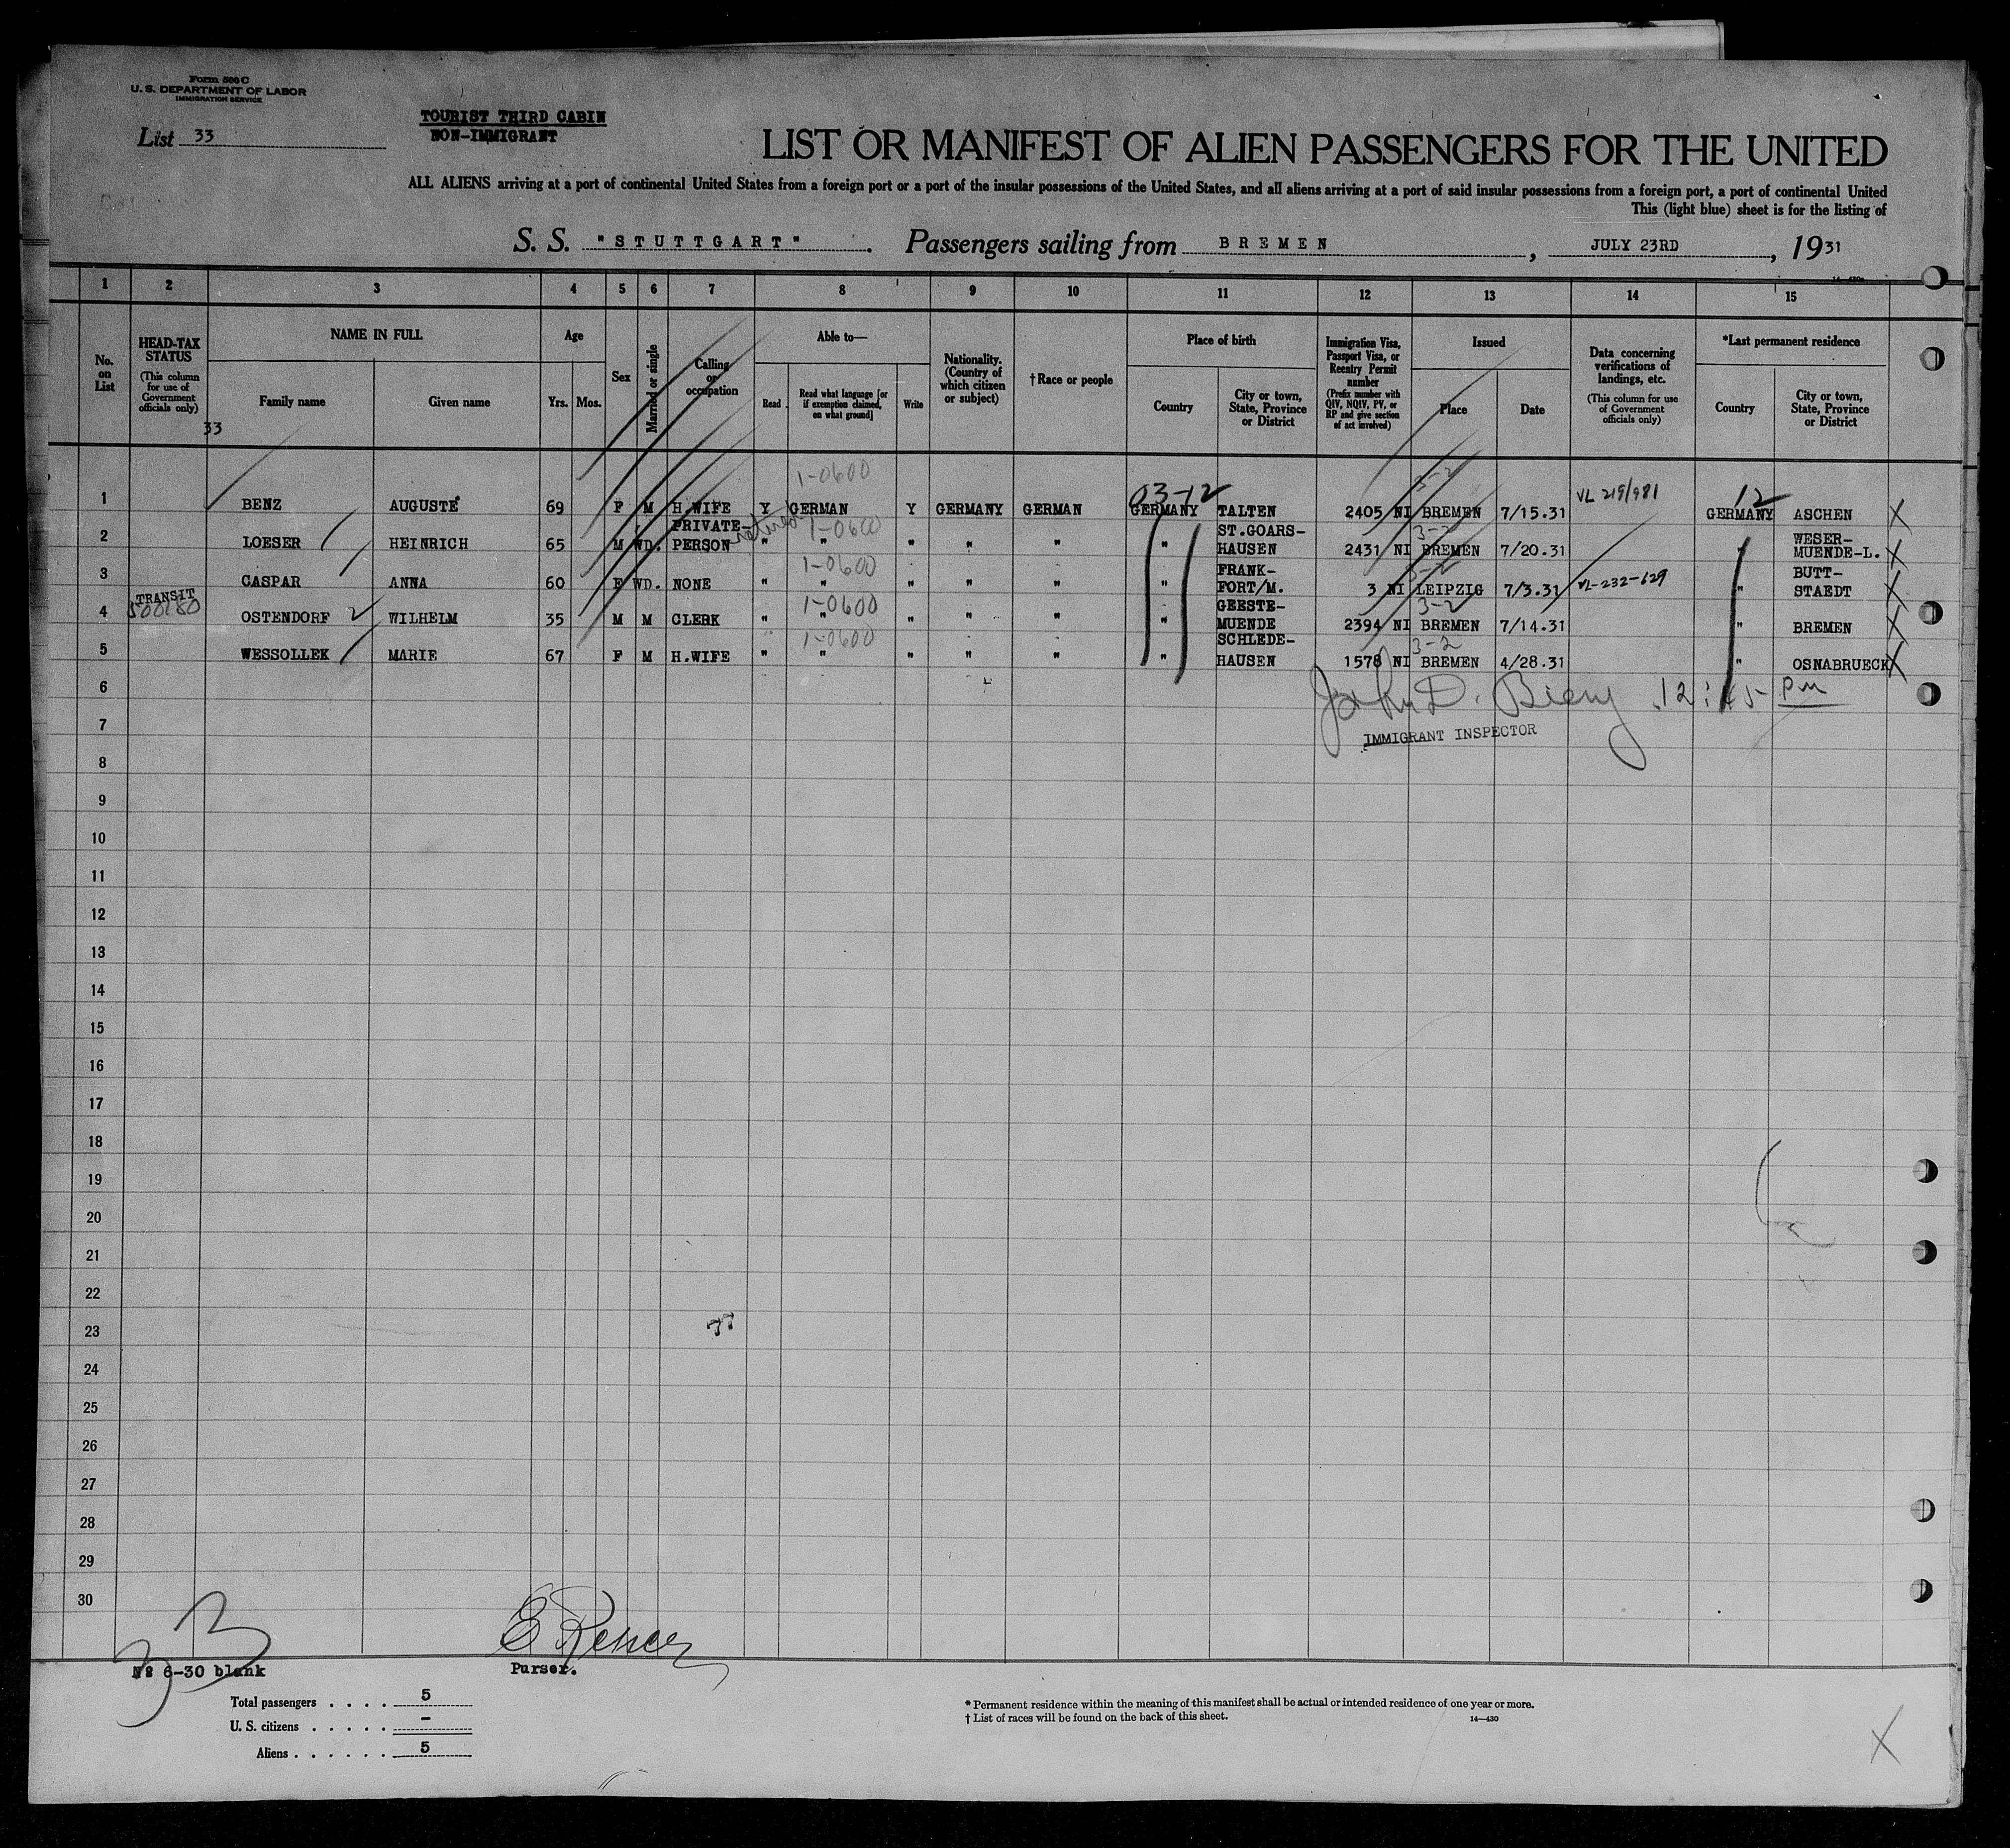 Form 500 C
U. S. DEPARTMENT OF LABOR
IMMIGRATION SERVICE
List 33
TOURIST THIRD CABIN
NON-IMMIGRANT
LIST OR MANIFEST OF ALIEN PASSENGERS FOR THE UNITED
ALL ALIENS arriving at a port of continental United States from a foreign port or a port of the insular possessions of the United States, and all aliens arriving at a port of said insular possessions from a foreign port, a port of continental United
This (light blue) sheet is for the listing of
S. S. "STUTTGART". Passengers sailing from BREMEN, JULY 23RD, 1931
1 2 3 4 5 6 7 8 9 10 11 12 13 14 15
No. on List
HEAD-TAX STATUS (This column for use of Government officials only)
NAME IN FULL
Family name
Given name
Age
Yrs. Mos.
Sex
Married or single
Calling or occupation
Able to—
Read
Read what language [or if exemption claimed, on what ground]
Write
Nationality. (Country of which citizen or subject)
† Race or people
Place of birth
Country
City or town, State, Province or District
Immigration Visa, Passport Visa, or Reentry Permit number (Prefix number with QIV, NQIV, PV, or RP and give section of act involved)
Issued
Place
Date
Data concerning verifications of landings, etc. (This column for use of Government officials only)
*Last permanent residence
Country
City or town, State, Province or District
33
1-0600 03-12 3-2 VL 219/981 12
1 BENZ AUGUSTE 69 F M H.WIFE Y GERMAN Y GERMANY GERMAN GERMANY TALTEN 2405 NI BREMEN 7/15.31 GERMANY ASCHEN X
PRIVATE- retired 1-0600 ST.GOARS- 3-2 WESER-
2 LOESER HEINRICH 65 M WD. PERSON " " " " " " HAUSEN 2431 NI BREMEN 7/20.31 " MUENDE-L. X
1-0600 FRANK- 3-2 BUTT-
3 CASPAR ANNA 60 F WD. NONE " " " " " " FORT/M. 3 NI LEIPZIG 7/3.31 VL-232-629 " STAEDT X
TRANSIT 1-0600 GEESTE- 3-2
4 OSTENDORF WILHELM 35 M M CLERK " " " " " " MUENDE 2394 NI BREMEN 7/14.31 " BREMEN X
1-0600 SCHLEDE- 3-2
5 WESSOLLEK MARIE 67 F M H.WIFE " " " " " " HAUSEN 1578 NI BREMEN 4/28.31 " OSNABRUECK X
6 John D. Bieny 12:45 Pm
IMMIGRANT INSPECTOR
7
8
9
10
11
12
13
14
15
16
17
18
19
20
21
22
23
24
25
26
27
28
29
30
33
No 6-30 blank
Purser.
Total passengers . . . . 5
U. S. citizens . . . . . -
Aliens . . . . . . 5
* Permanent residence within the meaning of this manifest shall be actual or intended residence of one year or more.
† List of races will be found on the back of this sheet.
14—430
X